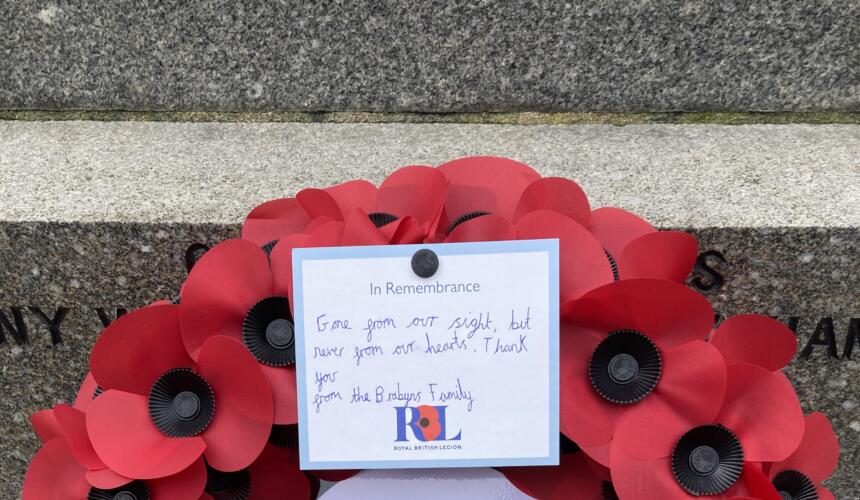 In Remembrance
Gone from our sight, but
never from our hearts. Thank
you
from the Brabyns Family
RBL
ROYAL BRITISH LEGION